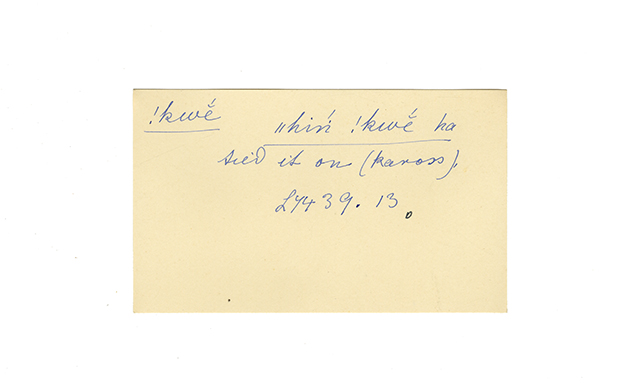 !kwé
"hiń !kwé ha
tied it on (kaross),
L439.13.